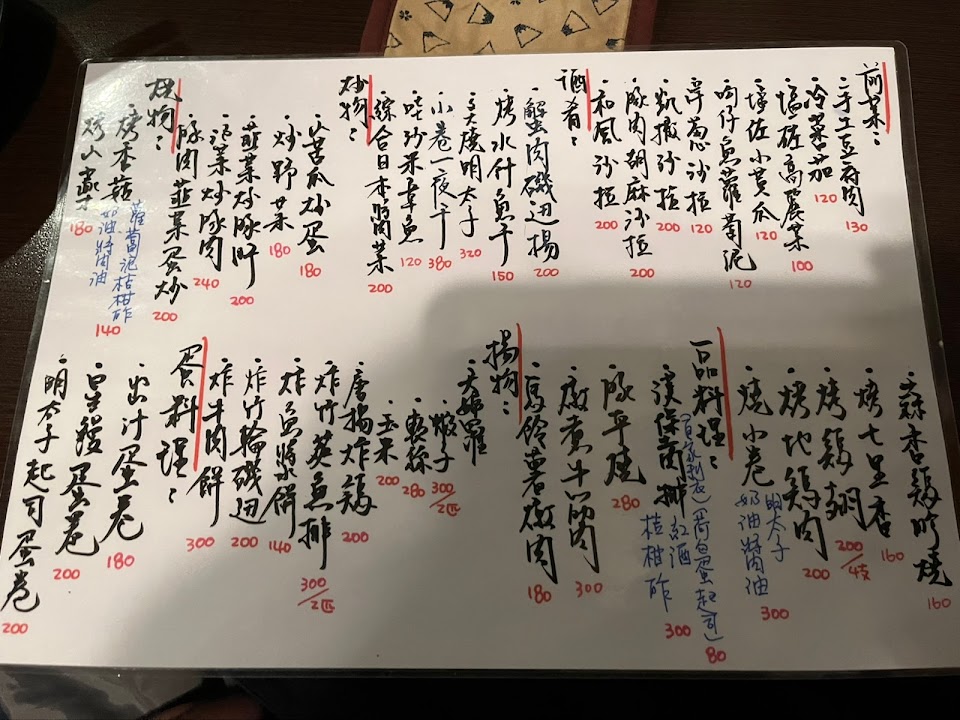 前菜：
·手工豆腐肉
130
·冷番茄
120
·塩磋高麗菜
100
·味佐小黃瓜
120
·吻仔魚蘿蔔泥
120
·洋蔥沙拉
120
·凱撒沙拉
200
·豚肉胡麻沙拉
200
·和風沙拉
200
酒肴：
·蟹肉磯辺揚
200
·烤水什魚干
150
·炙燒明太子
320
·小卷一夜干
380
·哇沙米章魚
120
·綜合日本醬菜
200
炒物：
·山苦瓜炒蛋
180
·炒野菜
180
·韮菜炒豚肝
200
·泡菜炒豚肉
240
·豚肉韮菜蛋炒
200
燒物：
·烤香菇
蘿蔔泥桔柑酢
奶油醬油
140
·烤山藥
180
·蒜香鷄胗燒
160
·烤七里香
160
·烤鷄翅
200/4支
·烤地鷄肉
200
·燒小卷
明太子
奶油醬油
300
一品料理：
·漢保肉排
(荷包蛋起司)
80
紅酒
桔柑酢
300
豚平燒
280
·燉煮牛筋肉
300
·馬鈴薯燉肉
180
揚物：
·天婦羅
·蝦子
300/2匹
·軟絲
280
·玉米
200
·唐揚炸鷄
200
·炸竹莢魚排
300/2匹
·炸魚漿餅
140
·炸竹輪磯辺
200
·炸牛肉餅
300
蛋料理：
·出汁蛋卷
180
·星鰻蛋卷
200
·明太子起司蛋卷
200